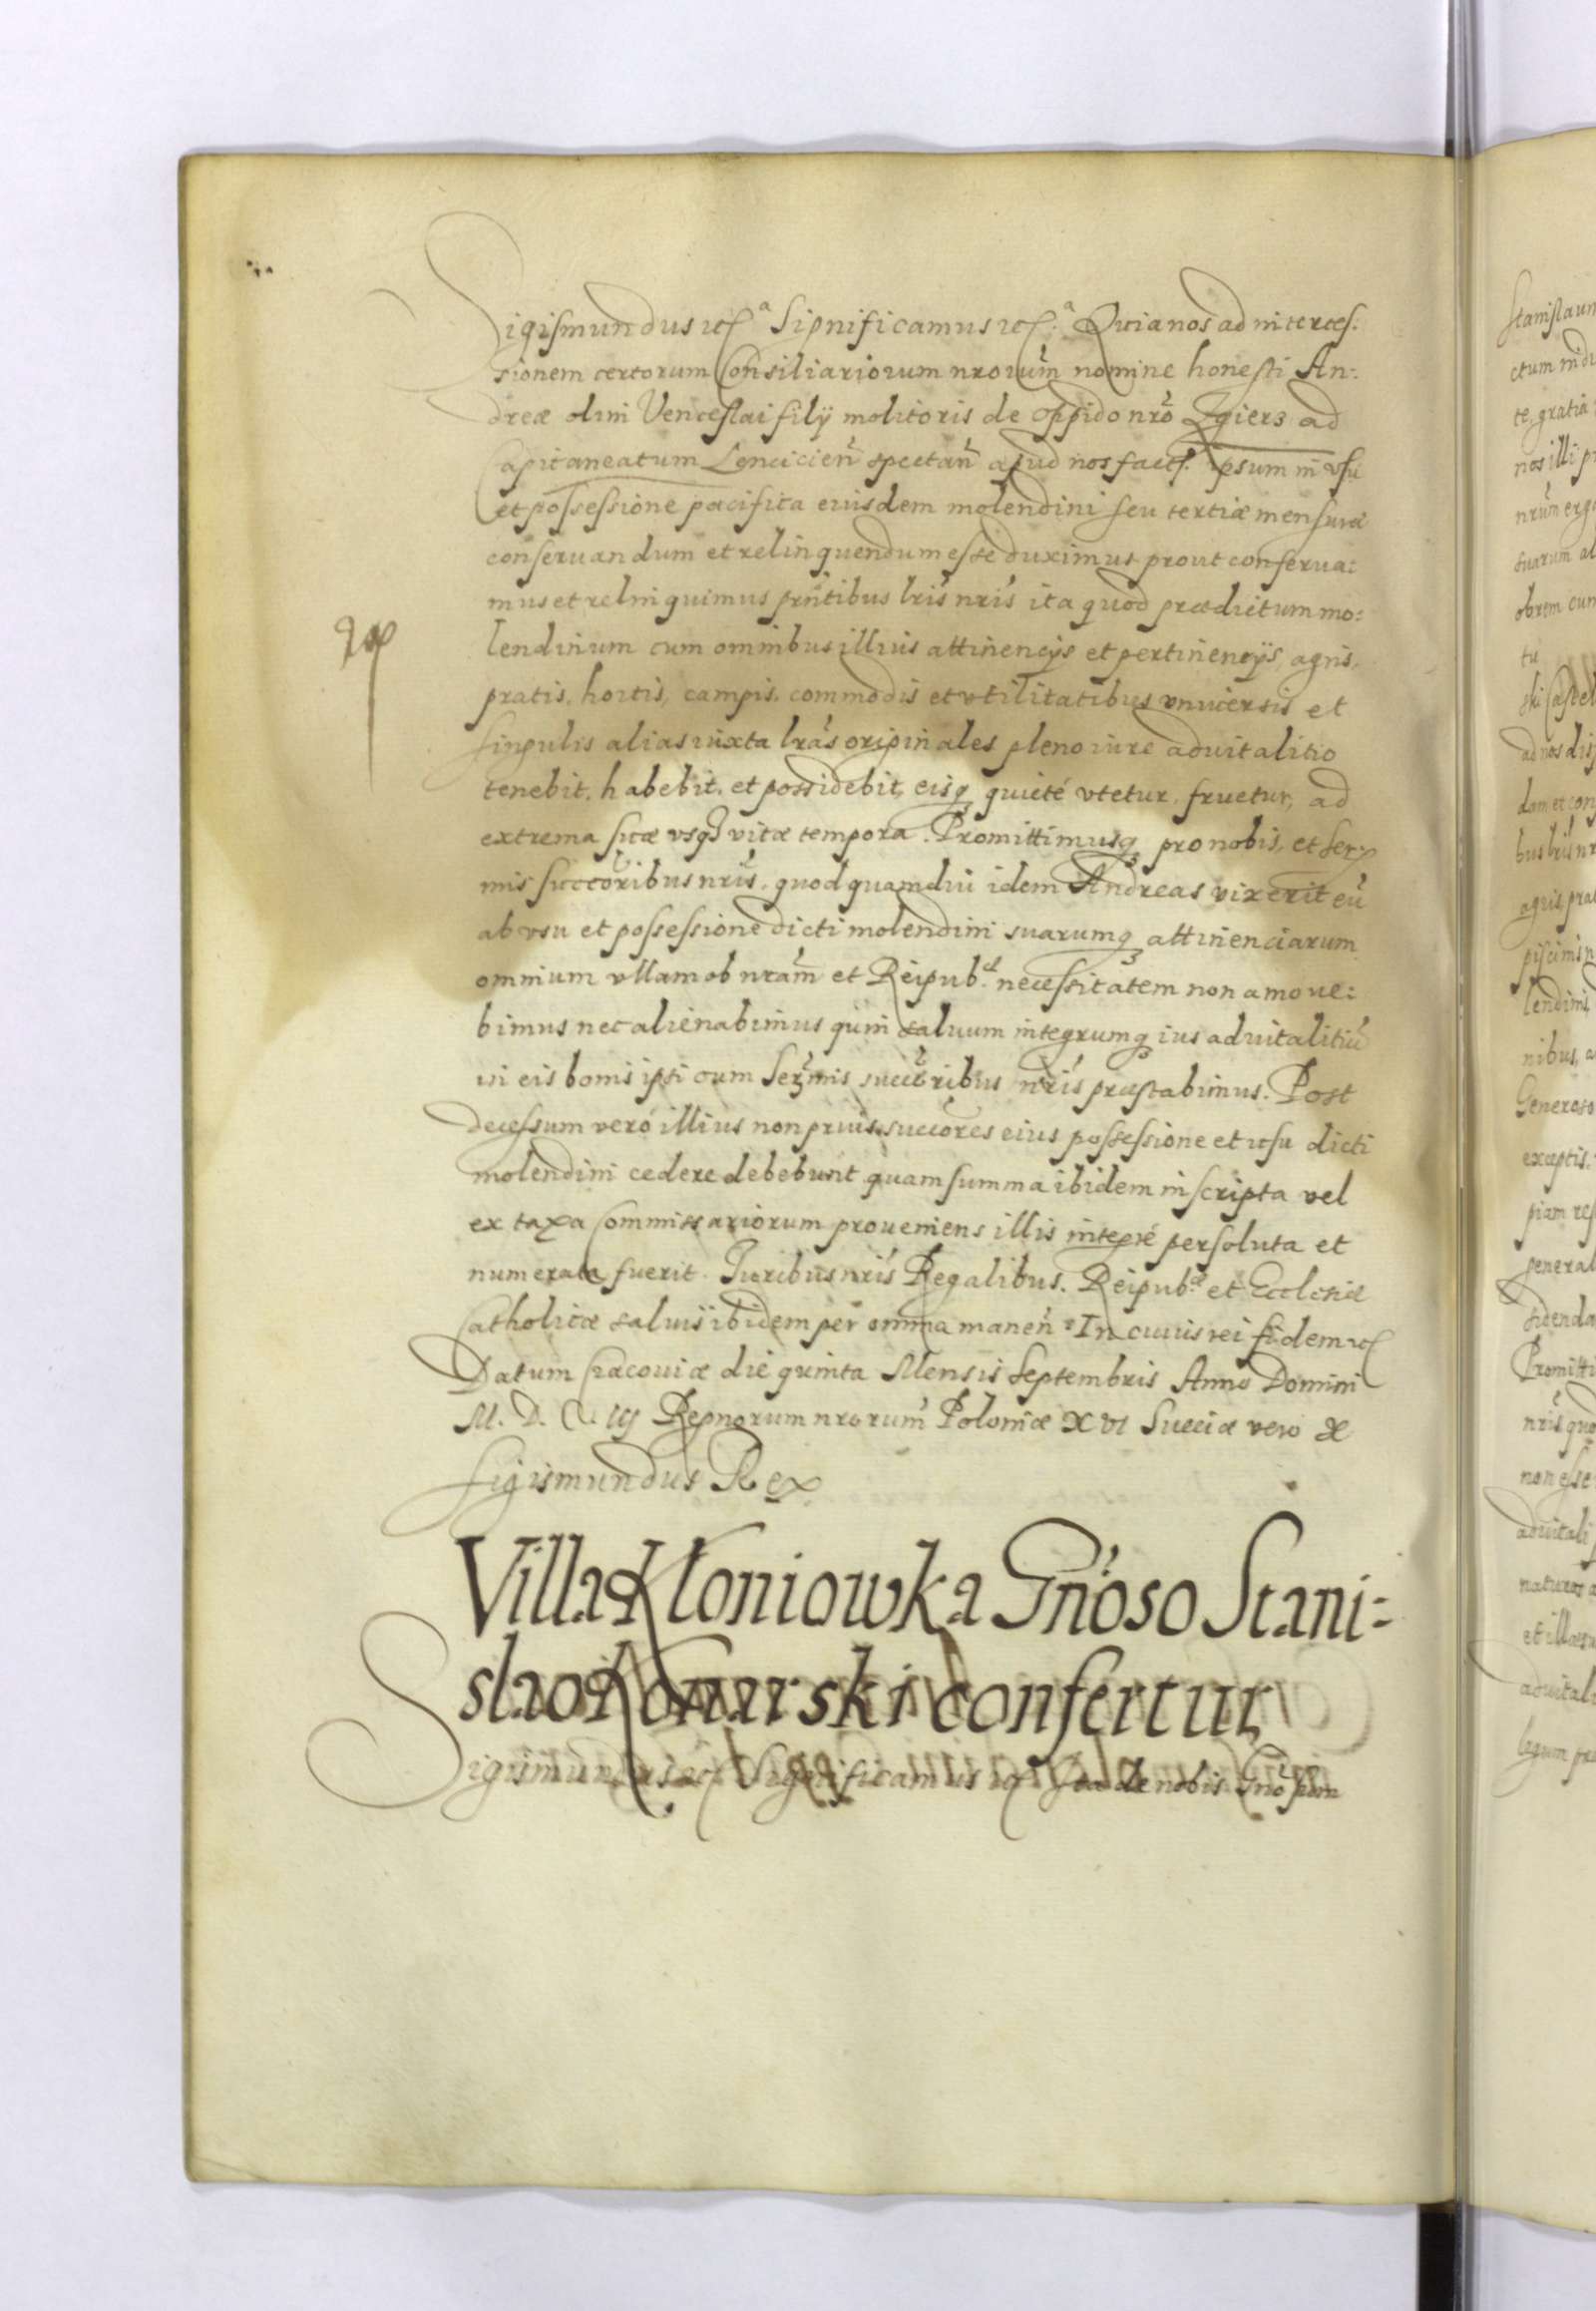 Sigismundus etc. Significamus etc. Quia nos ad interces:
sionem certorum Consiliariorum nrorum nomine honesti An:
dreæ olim Venceslai filij molitoris de oppido nro Zgierz ad
Capitaneatum Lencicien spectan apud nos fact. ipsum in usu
et possessione pacifica eiusdem molendini seu tertiæ mensuræ
conseruandum et relinquendum esse duximus prout conserua:
mus et relinquimus prntibus lris nris ita quod prædictum mo:
lendinum cum omnibus illius attinencijs et pertinencijs, agris,
pratis, hortis, campis, commodis et vtilitatibus vniuersis et
singulis alias iuxta lras originales pleno iure aduitalitio
tenebit, habebit, et possidebit, eisq quieté vtetur, fruetur, ad
extrema suæ vsq vitæ tempora. Promittimusq pro nobis, et Ser:
mis succoribus nris, quod quamdiu idem Andreas vixerit eū
ab vsu et possessione dicti molendini suarumq attinenciarum
omnium vllam ob nram et Reipub. necessitatem non amoue:
bimus nec alienabimus quin saluum integrumq ius aduitalitiū
in eis bonis ipsi cum Sermis succribus nris præstabimus. Post
decessum veró illius non prius succores eius possessione et vsu dicti
molendini cedere debebunt quam summa ibidem inscripta vel
ex taxa Commissariorum proueniens illis integré persoluta et
numerata fuerit. Juribus nris Regalibus, Reipub. et Ecclesiæ
Catholicæ saluis ibidem per omnia manen. In cuius rei fidem etc
Datum Cracouiæ die quinta Mensis Septembris Anno Domini
M. D. C. iij Regnorum nrorum Poloniæ XVI Sueciæ vero X
Sigismundus Rex
Villa Kłoniowka Gnoso Stani=
slao Konarski confertur
Sigismundus etc Significamus etc Ita de nobis Gnosum